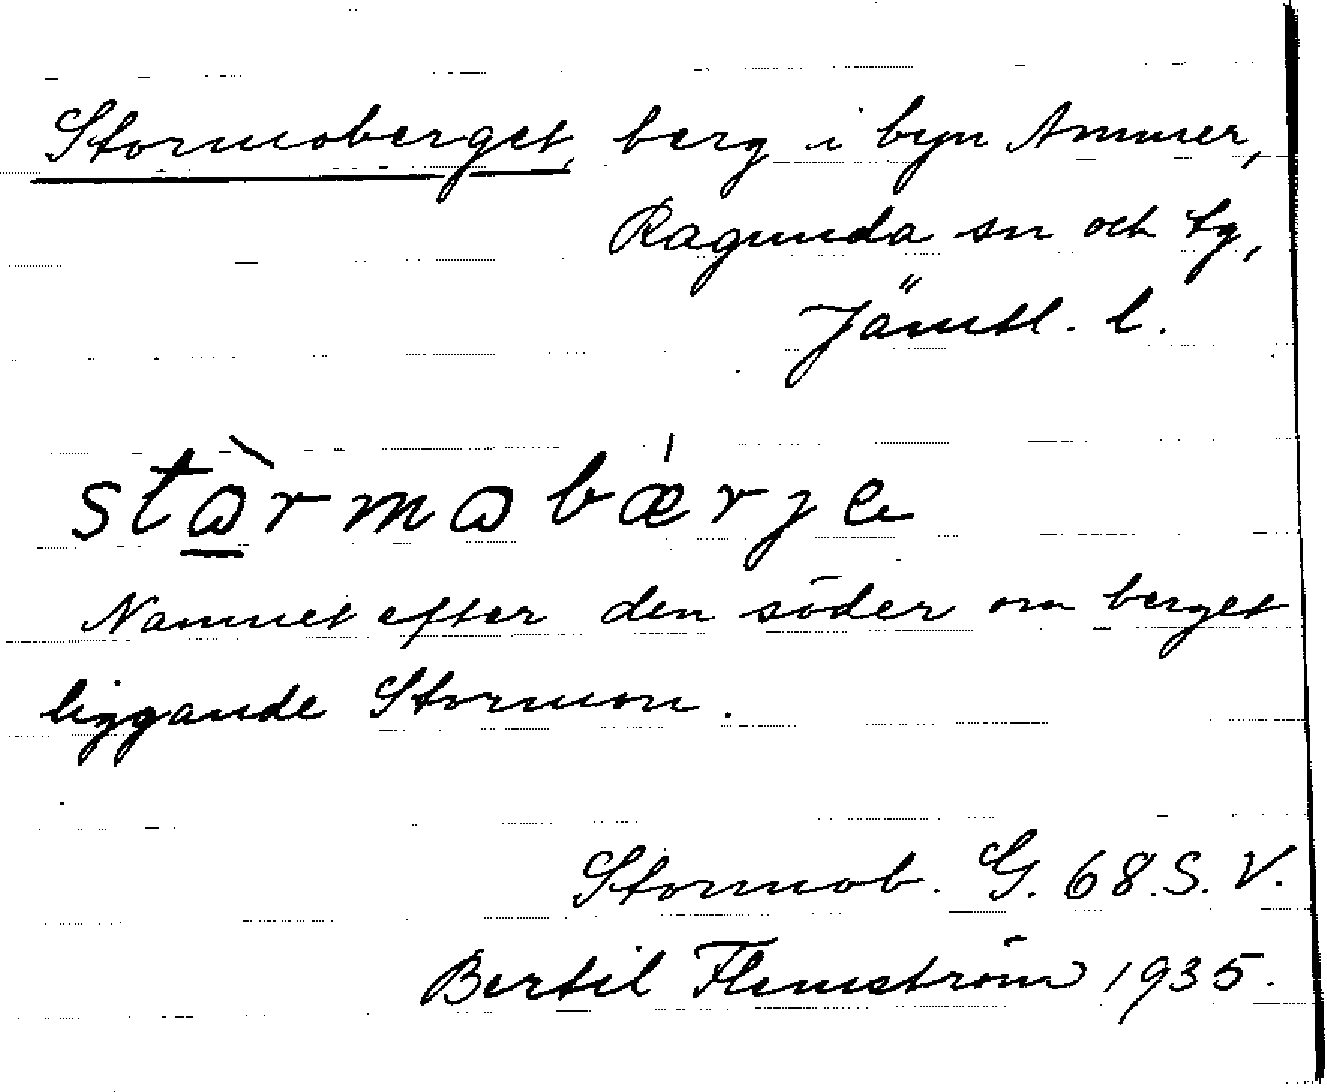 Stormoberget, berg i byn Ammer,
Ragunda sn och tg,
Jämtl. l.
stɷ̀rmɷbǽrje
Namnet efter den söder om berget
liggande Stormon.
Stormob. G. 68. S. V.
Bertil Flemström 1935.